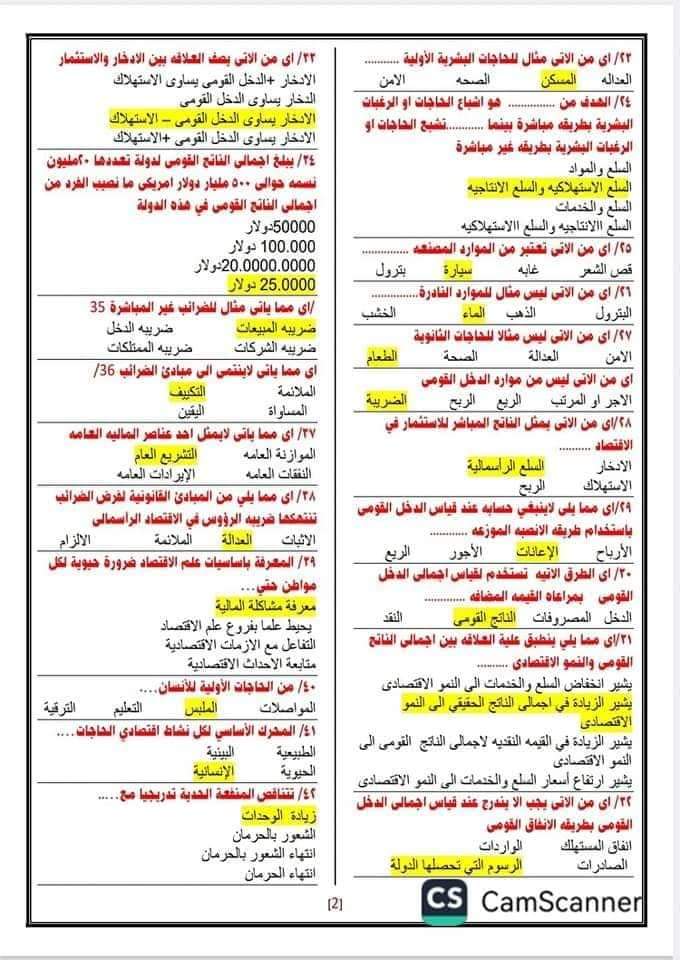 ٢٣/ اى من الاتى مثال للحاجات البشرية الأولية ..........
العداله المسكن الصحه الامن
٢٤/ الهدف من ............. هو اشباع الحاجات او الرغبات
البشرية بطريقه مباشرة بينما ...........تشبع الحاجات او
الرغبات البشرية بطريقه غير مباشرة
السلع والمواد
السلع الاستهلاكيه والسلع الانتاجيه
السلع والخدمات
السلع االانتاجيه والسلع االاستهلاكيه
٢٥/ اى من الاتى تعتبر من الموارد المصنعه ..............
قص الشعر غابه سيارة بترول
٢٦/ اى من الاتى ليس مثال للموارد النادرة..............
البترول الذهب الماء الخشب
٢٧/ اى من الاتى ليس مثالا للحاجات الثانوية
الامن العدالة الصحة الطعام
اى من الاتى ليس من موارد الدخل القومى
الاجر او المرتب الريع الربح الضريبة
٢٨/اى من الاتى يمثل الناتج المباشر للاستثمار في
الاقتصاد ..........
الادخار السلع الرأسمالية
الاستهلاك الربح
٢٩/اى مما يلى لاينبغي حسابه عند قياس الدخل القومى
باستخدام طريقه الانصبه الموزعه ............
الأرباح الإعانات الأجور الريع
٣٠/ اى الطرق الاتيه تستخدم لقياس اجمالى الدخل
القومى بمراعاه القيمه المضافه .............
الدخل المصروفات الناتج القومى النقد
٣١/ اى مما يلي ينطبق علية العلاقه بين اجمالى الناتج
القومى والنمو الاقتصادى ..........
يشير انخفاض السلع والخدمات الى النمو الاقتصادى
يشير الزيادة في اجمالى الناتج الحقيقي الى النمو
الاقتصادى
يشير الزيادة في القيمه النقديه لاجمالى الناتج القومى الى
النمو الاقتصادى
يشير ارتفاع أسعار السلع والخدمات الى النمو الاقتصادى
٣٢/ اى من الاتى يجب الا يندرج عند قياس اجمالى الدخل
القومى بطريقه الانفاق القومى
انفاق المستهلك الواردات
الصادرات الرسوم التي تحصلها الدولة
٣٣/ اى من الاتى يصف العلاقه بين الادخار والاستثمار
الادخار +الدخل القومى يساوى الاستهلاك
الدخار يساوى الدخل القومى
الادخار يساوى الدخل القومى – الاستهلاك
الادخار يساوى الدخل القومى +الاستهلاك
٣٤/ يبلغ اجمالى الناتج القومى لدولة تعددها ٢٠مليون
نسمه حوالى ٥٠٠ مليار دولار امريكى ما نصيب الفرد من
اجمالى الناتج القومى في هذه الدولة
50000دولار
100.000 دولار
20.0000.0000دولار
25.0000 دولار
/اى مما ياتى مثال للضرائب غير المباشرة 35
ضريبه المبيعات ضريبه الدخل
ضريبه الشركات ضريبه الممتلكات
اى مما ياتى لاينتمى الى مبادئ الضرائب 36/
الملائمة التكييف
المساواة اليقين
٣٧/ اى مما ياتى لايمثل احد عناصر الماليه العامه
الموازنة العامه التشريع العام
النفقات العامه الإيرادات العامه
٣٨/ اى مما يلي من المبادئ القانونية لفرض الضرائب
تنتهكها ضريبه الرؤوس في الاقتصاد الرأسمالى
الاثبات العدالة الملائمة الالزام
٣٩/ المعرفة باساسيات علم الاقتصاد ضرورة حيوية لكل
مواطن حتي...
معرفة مشاكلة المالية
يحيط علما بفروع علم الاقتصاد
التفاعل مع الازمات الاقتصادية
متابعة الاحداث الاقتصادية
٤٠/ من الحاجات الأولية للأنسان....
المواصلات الملبس التعليم الترقية
٤١/ المحرك الأساسي لكل نشاط اقتصادي الحاجات....
الطبيعية البينية
الحيوية الإنسانية
٤٢/ تتناقص المنفعة الحدية تدريجيا مع.....
زيادة الوحدات
الشعور بالحرمان
انتهاء الشعور بالحرمان
انتهاء الحرمان
[2]
CS CamScanner